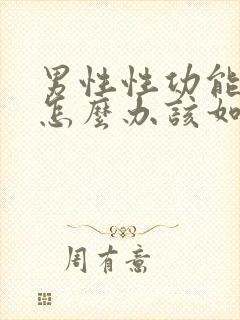 男性性功能
怎麼办該如
周有意